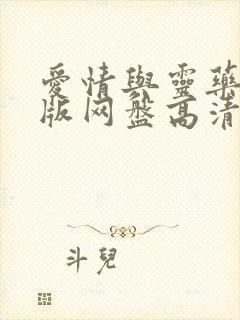 愛情與靈藥
版网盤高清
斗兒